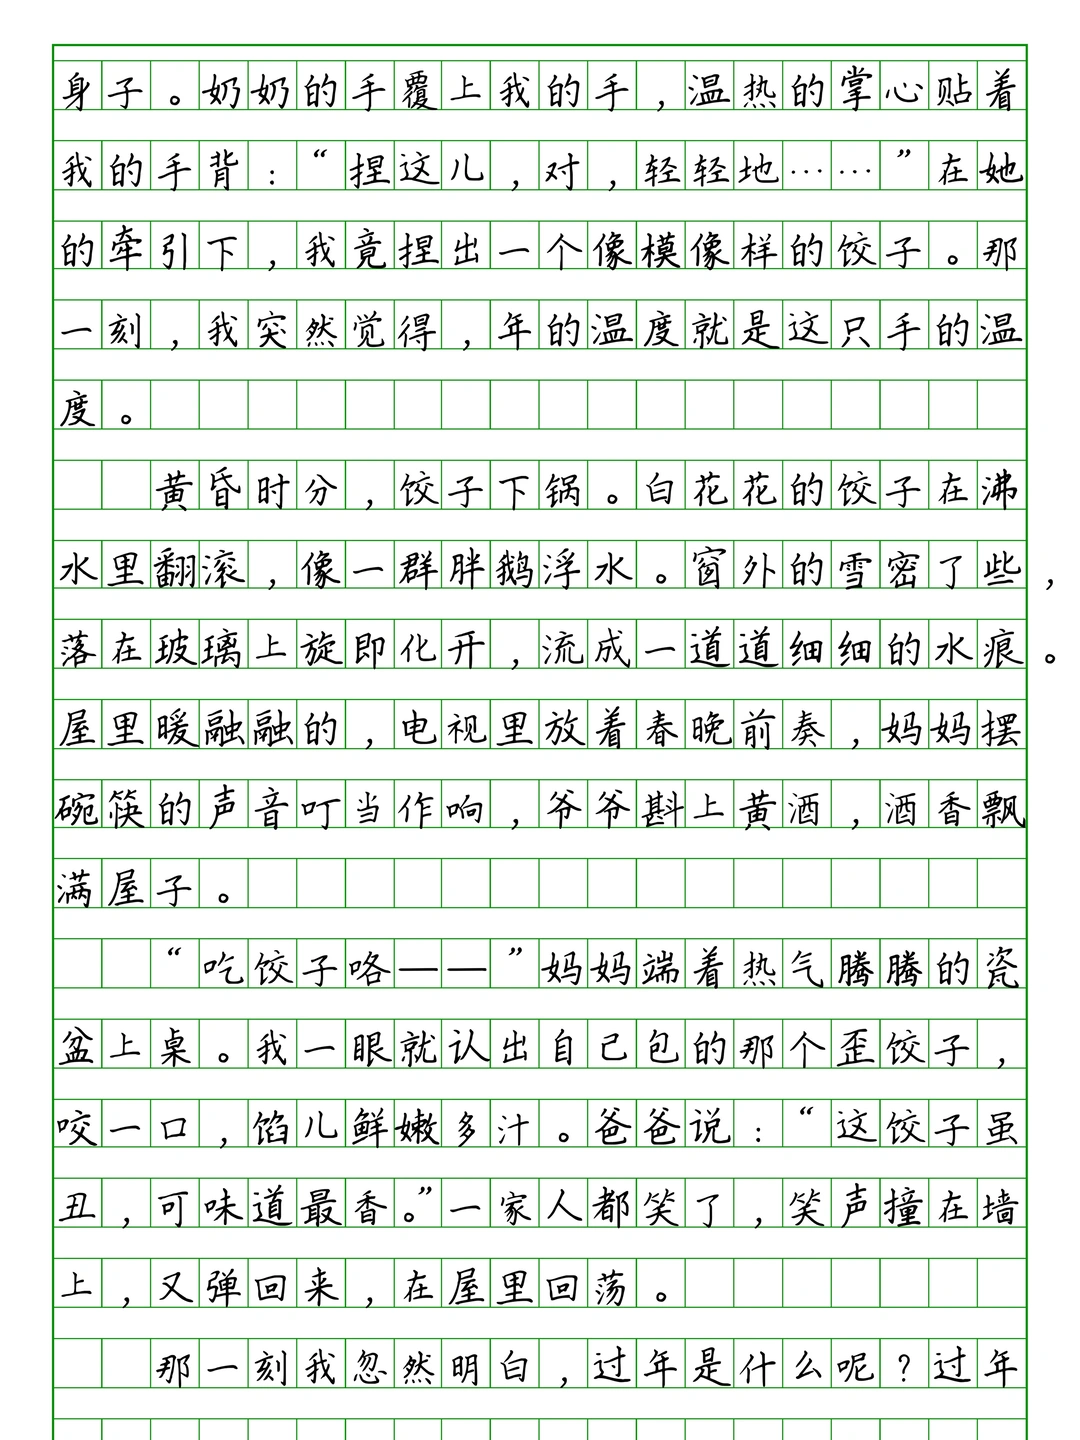 身子。奶奶的手覆上我的手，温热的掌心贴着
我的手背：“捏这儿，对，轻轻地……”在她
的牵引下，我竟捏出一个像模像样的饺子。那
一刻，我突然觉得，年的温度就是这只手的温
度。
黄昏时分，饺子下锅。白花花的饺子在沸
水里翻滚，像一群胖鹅浮水。窗外的雪密了些，
落在玻璃上旋即化开，流成一道道细细的水痕。
屋里暖融融的，电视里放着春晚前奏，妈妈摆
碗筷的声音叮当作响，爷爷斟上黄酒，酒香飘
满屋子。
“吃饺子咯——”妈妈端着热气腾腾的瓷
盆上桌。我一眼就认出自己包的那个歪饺子，
咬一口，馅儿鲜嫩多汁。爸爸说：“这饺子虽
丑，可味道最香。”一家人都笑了，笑声撞在墙
上，又弹回来，在屋里回荡。
那一刻我忽然明白，过年是什么呢？过年